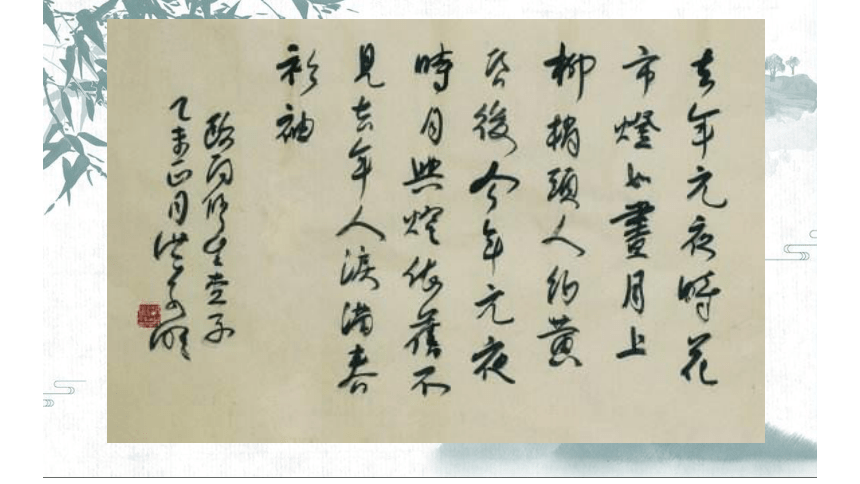 去年元夜時花
市燈如晝月上
柳梢頭人約黃
昏後今年元夜
時月與燈依舊不
見去年人淚滿春
衫袖
歐陽修生查子
乙未正月